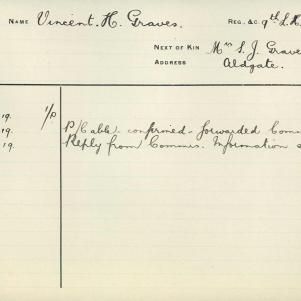 NAME Vincent. H. Graves. REG. &C. 9th L.H.
NEXT OF KIN Mrs S. J. Grave
ADDRESS Aldgate.
19. 1/P P/Cable. confirmed - forwarded Comm
19. Reply from Commrs. Information s
19